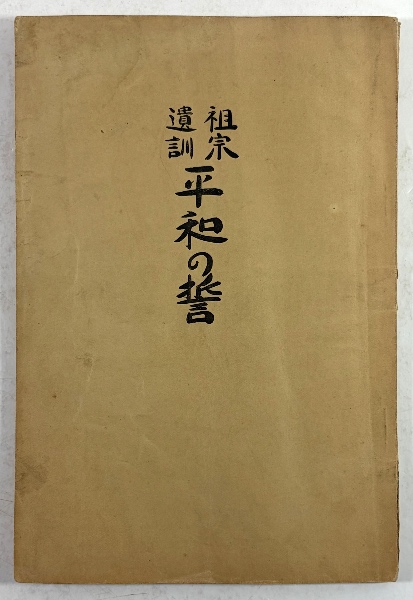 祖宗
遺訓
平和の誓